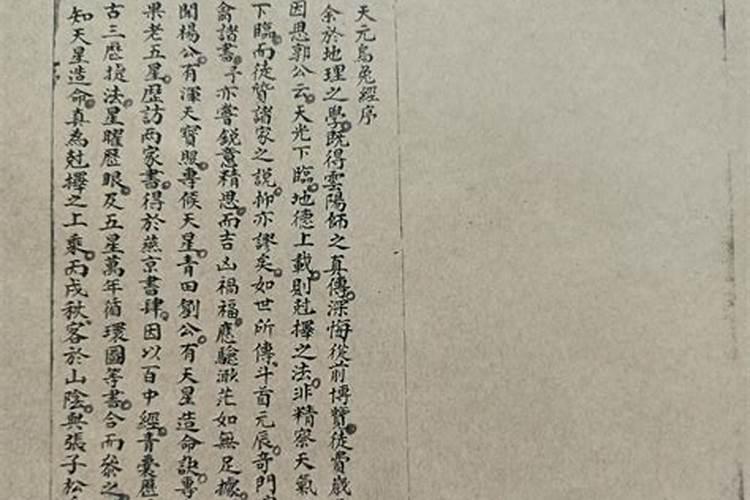 天元烏兔經序
余於地理之學既得雲陽師之真傳深悔從前博覽徒費歲
因思郭公云天光下臨地德上載則尅擇之法非精察天氣
下臨而徒贊諸家之說抑亦謬矣如世所傳斗首元辰奇門
禽諸書予亦嘗鋭意精思而吉凶禍福應驗渺茫如無足據
聞楊公有渾天寶照專候天星青田劉公有天星造命訣專
果老五星歷訪兩家書得於燕京書肆因以百中經青囊歷
古三歷捷法星曜歷眼及五星萬年循環圖等書合而參之
知天星造命真為尅擇之上乘丙戌秋客於山陰與張子松